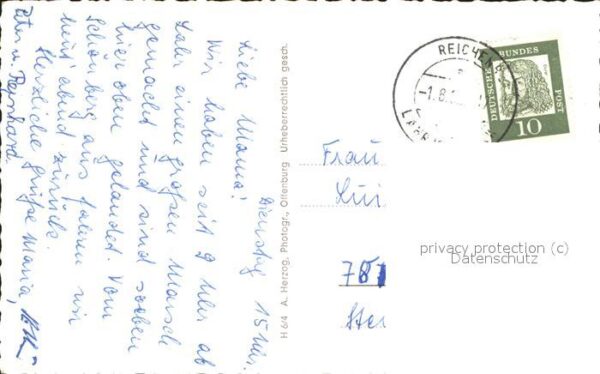 Dienstag 15 Uhr.
Liebe Mama!
Wir haben seit 9 Uhr ab
Lahr einen großen Marsch
gemacht und sind soeben
hier oben gelandet. Vom
Schönberg aus fahren wir
heut abend zurück.
Herzliche Grüße Maria,
Peter u. Reinhard
H 6/4 A. Herzog, Photogr., Offenburg Urheberrechtlich gesch.
REICHENB
-1.8.
DEUTSCHE BUNDES
POST
10
Frau
Lui
78
privacy protection (c)
Datenschutz